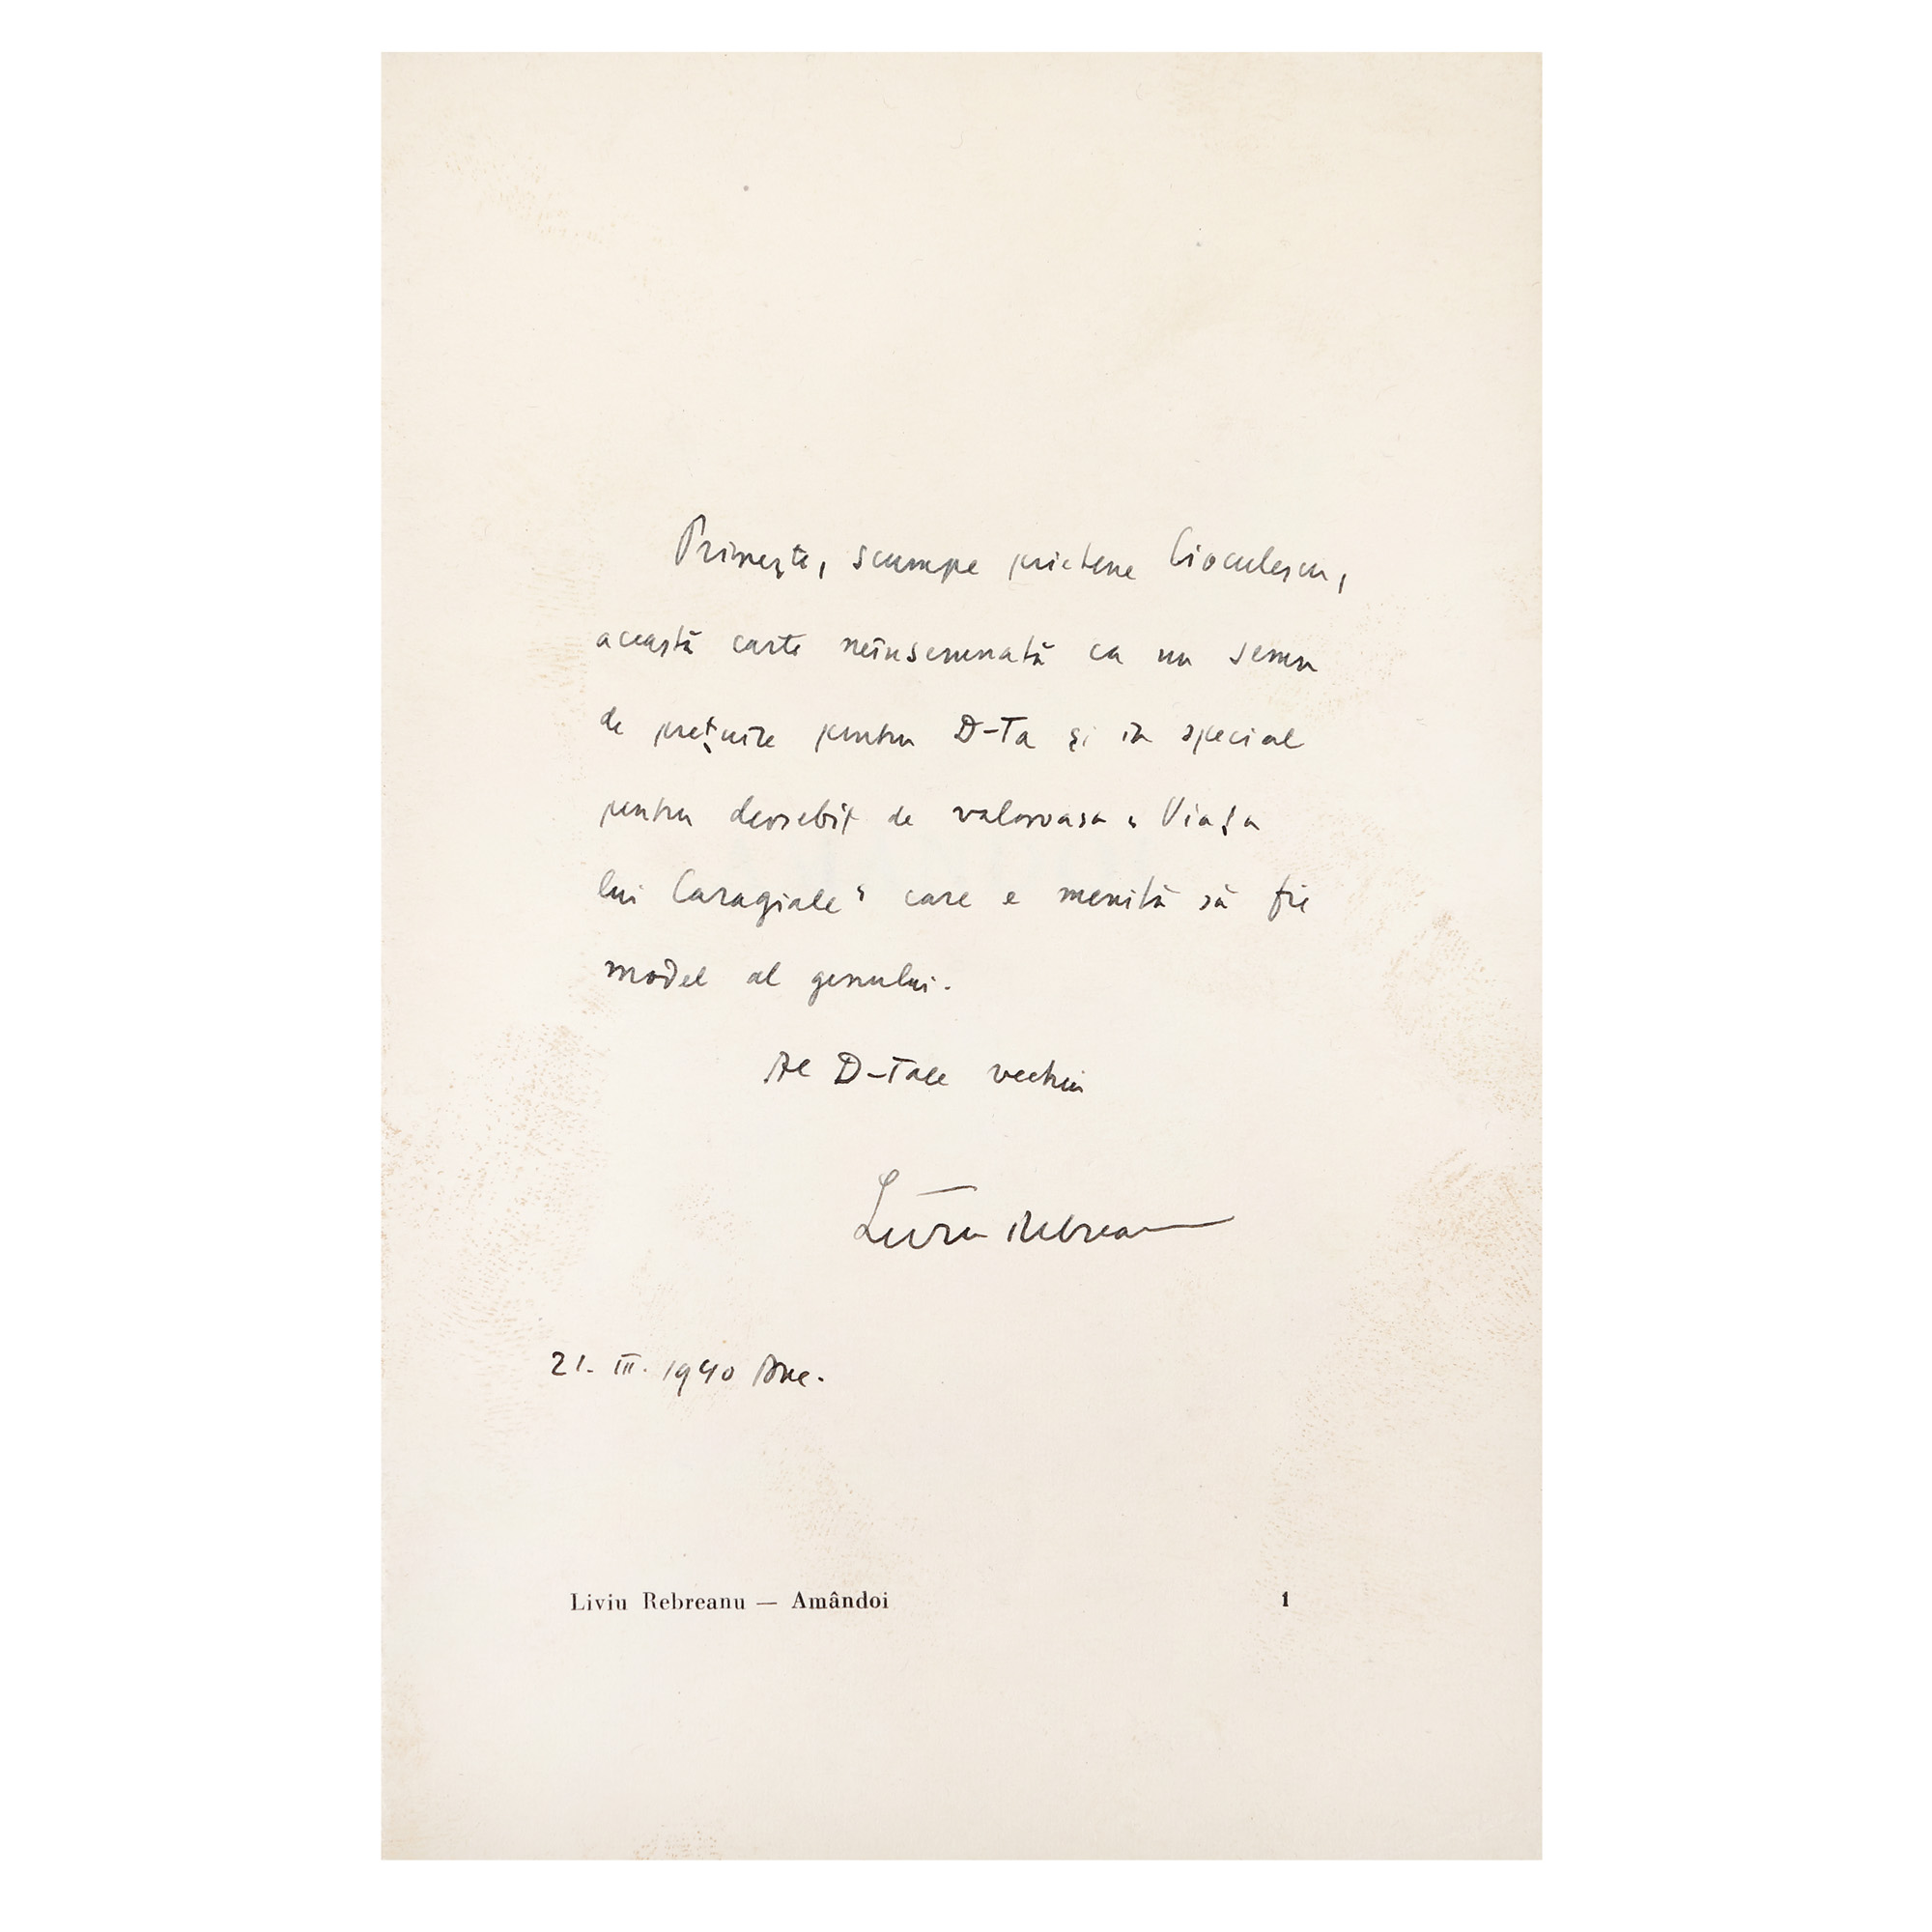 Primește, scumpe prietene Cioculescu,
această carte neînsemnată ca un semn
de prețuire pentru D-Ta și în special
pentru deosebit de valoroasa „Viața
lui Caragiale" care e menită să fie
model al genului.
Al D-Tale vechiu
Liviu Rebreanu
21. III. 1940 Buc.
Liviu Rebreanu — Amândoi 1